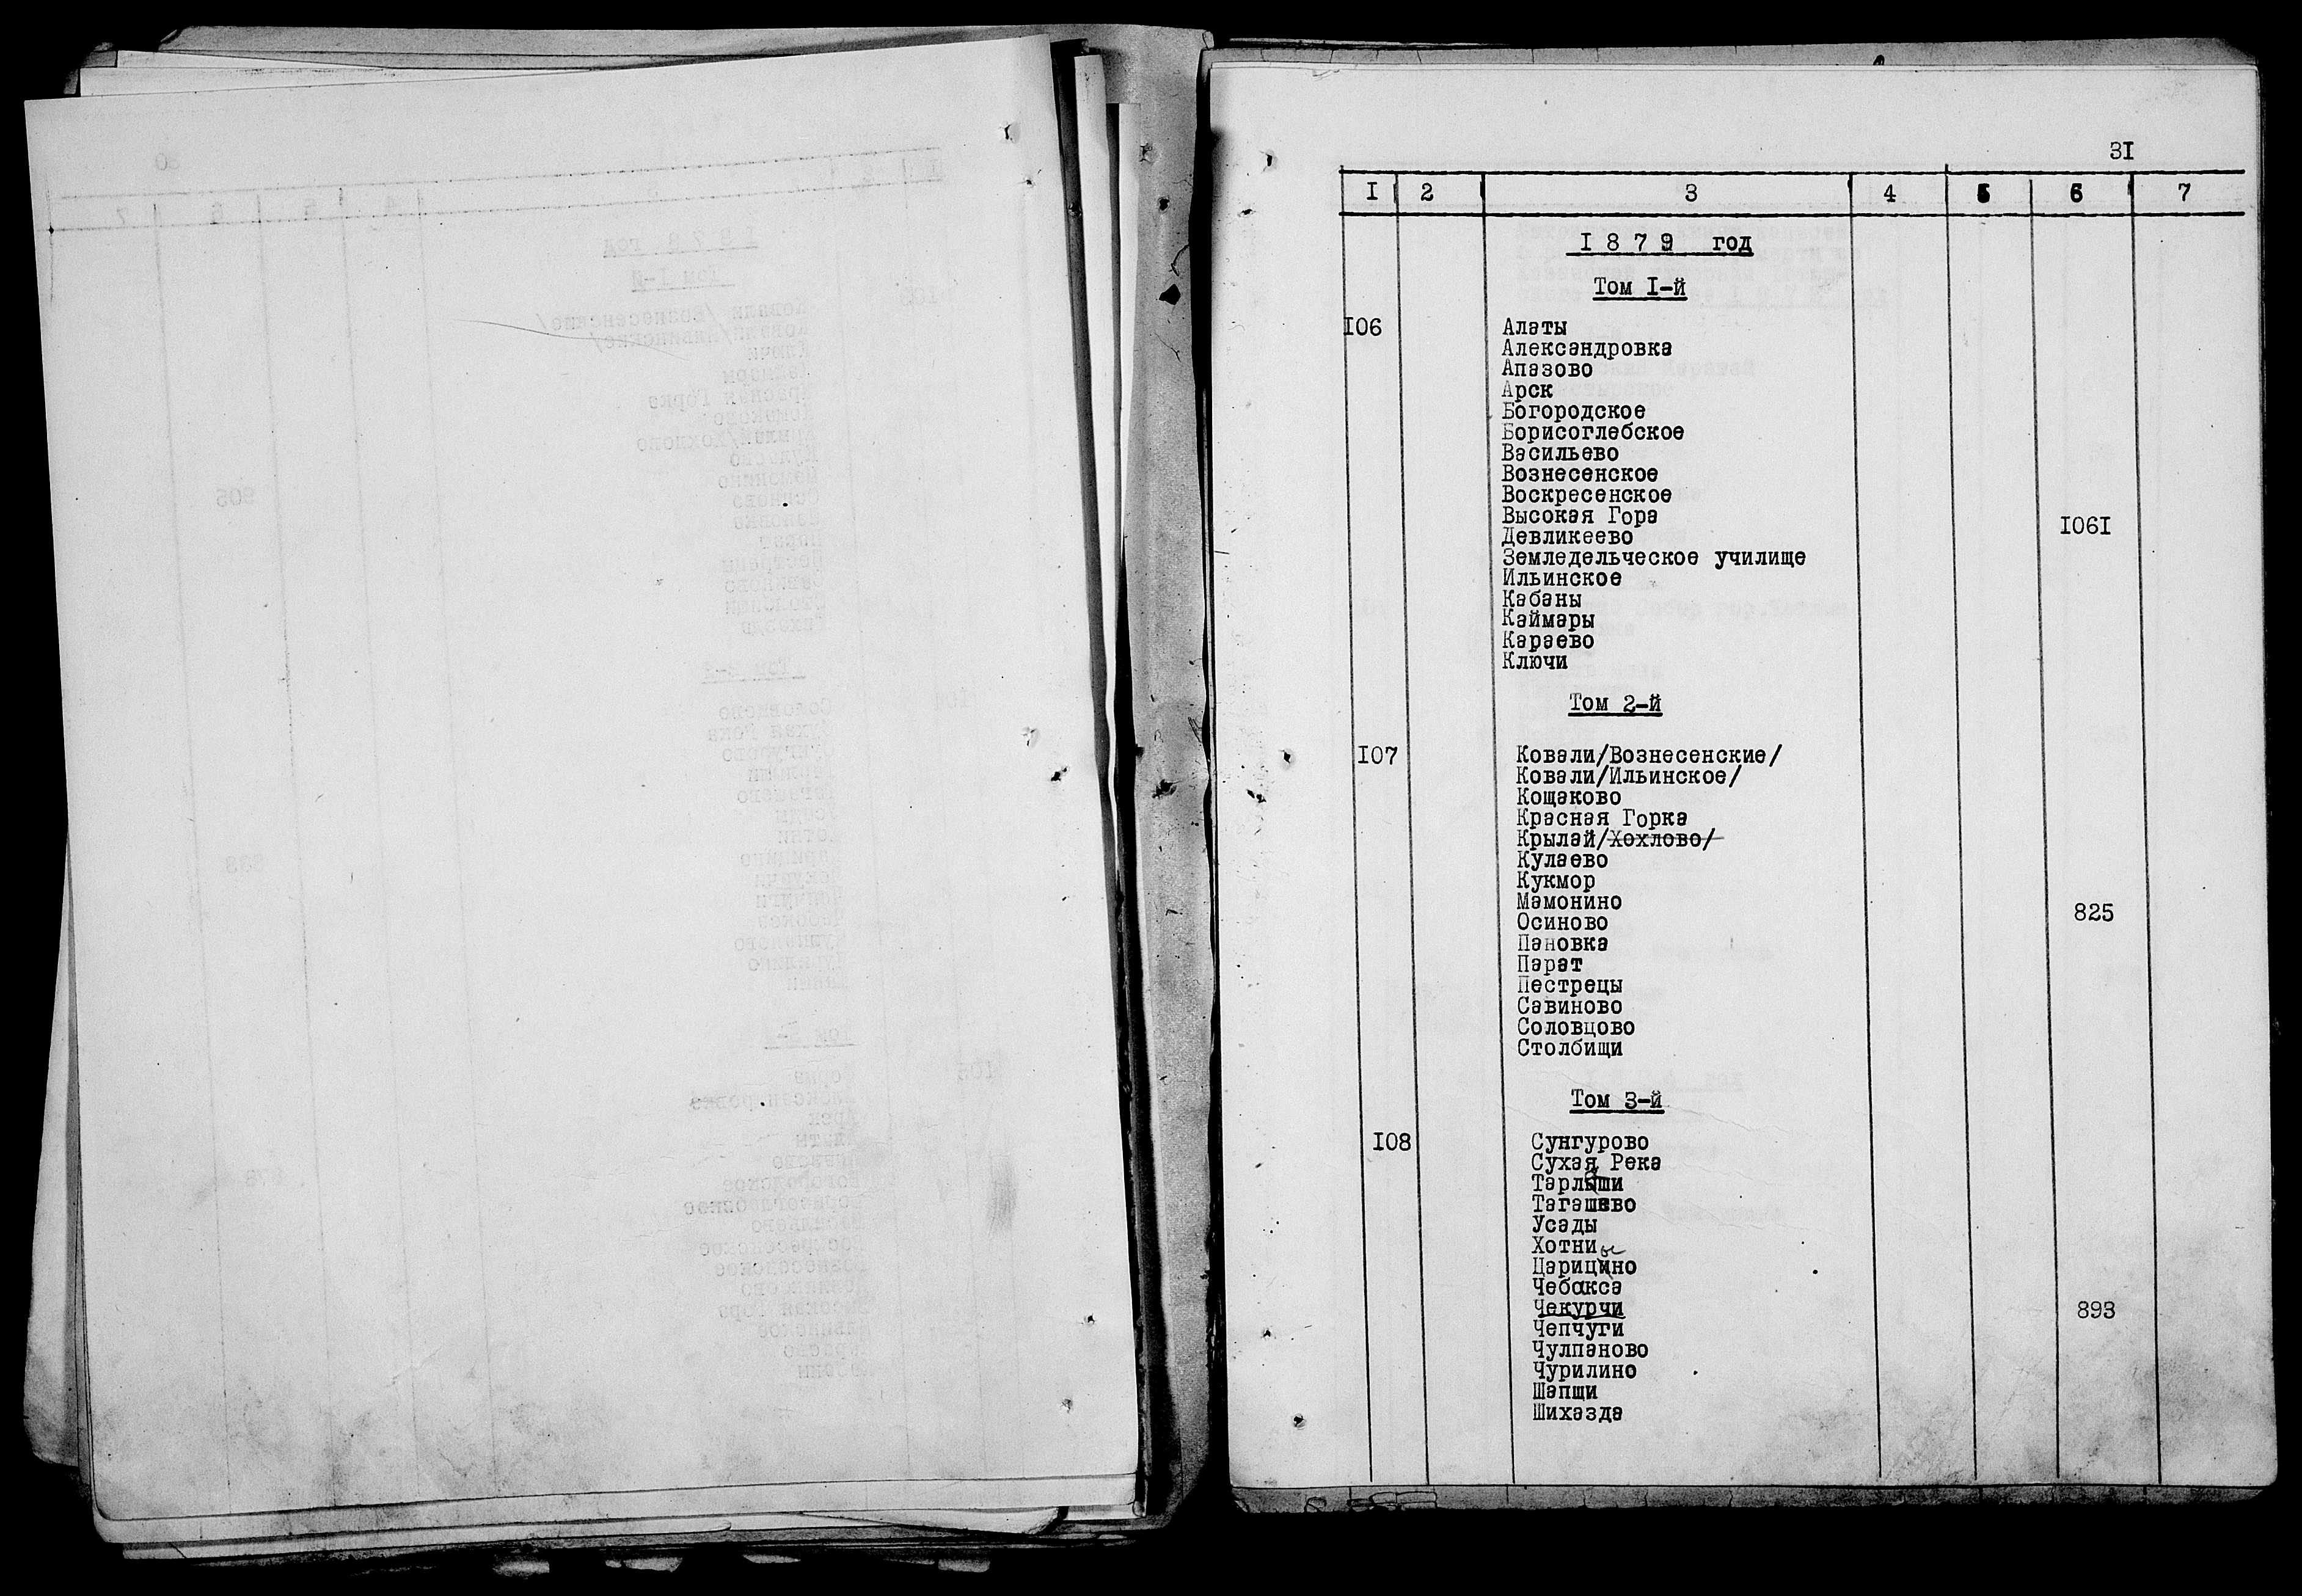 31
1 2 3 4 5 6 7
1879 год
Том I-й
106 Алаты
Александровка
Апазово
Арск
Богородское
Борисоглебское
Васильево
Вознесенское
Воскресенское
Высокая Гора
1061
Девликеево
Земледельческое училище
Ильинское
Кабаны
Каймары
Караево
Ключи
Том 2-й
107 Ковали/Вознесенские/
Ковали/Ильинское/
Кощаково
Красная Горка
Крылай/Хохлово/
Кулаево
Кукмор
Мамонино
825
Осиново
Пановка
Парат
Пестрецы
Савиново
Соловцово
Столбищи
Том 3-й
108 Сунгурово
Сухая Река
Тарлаши
Тагашево
Усады
Хотни
Царицино
Чебакса
Чекурчи 893
Чепчуги
Чулпаново
Чурилино
Шапши
Шихазда